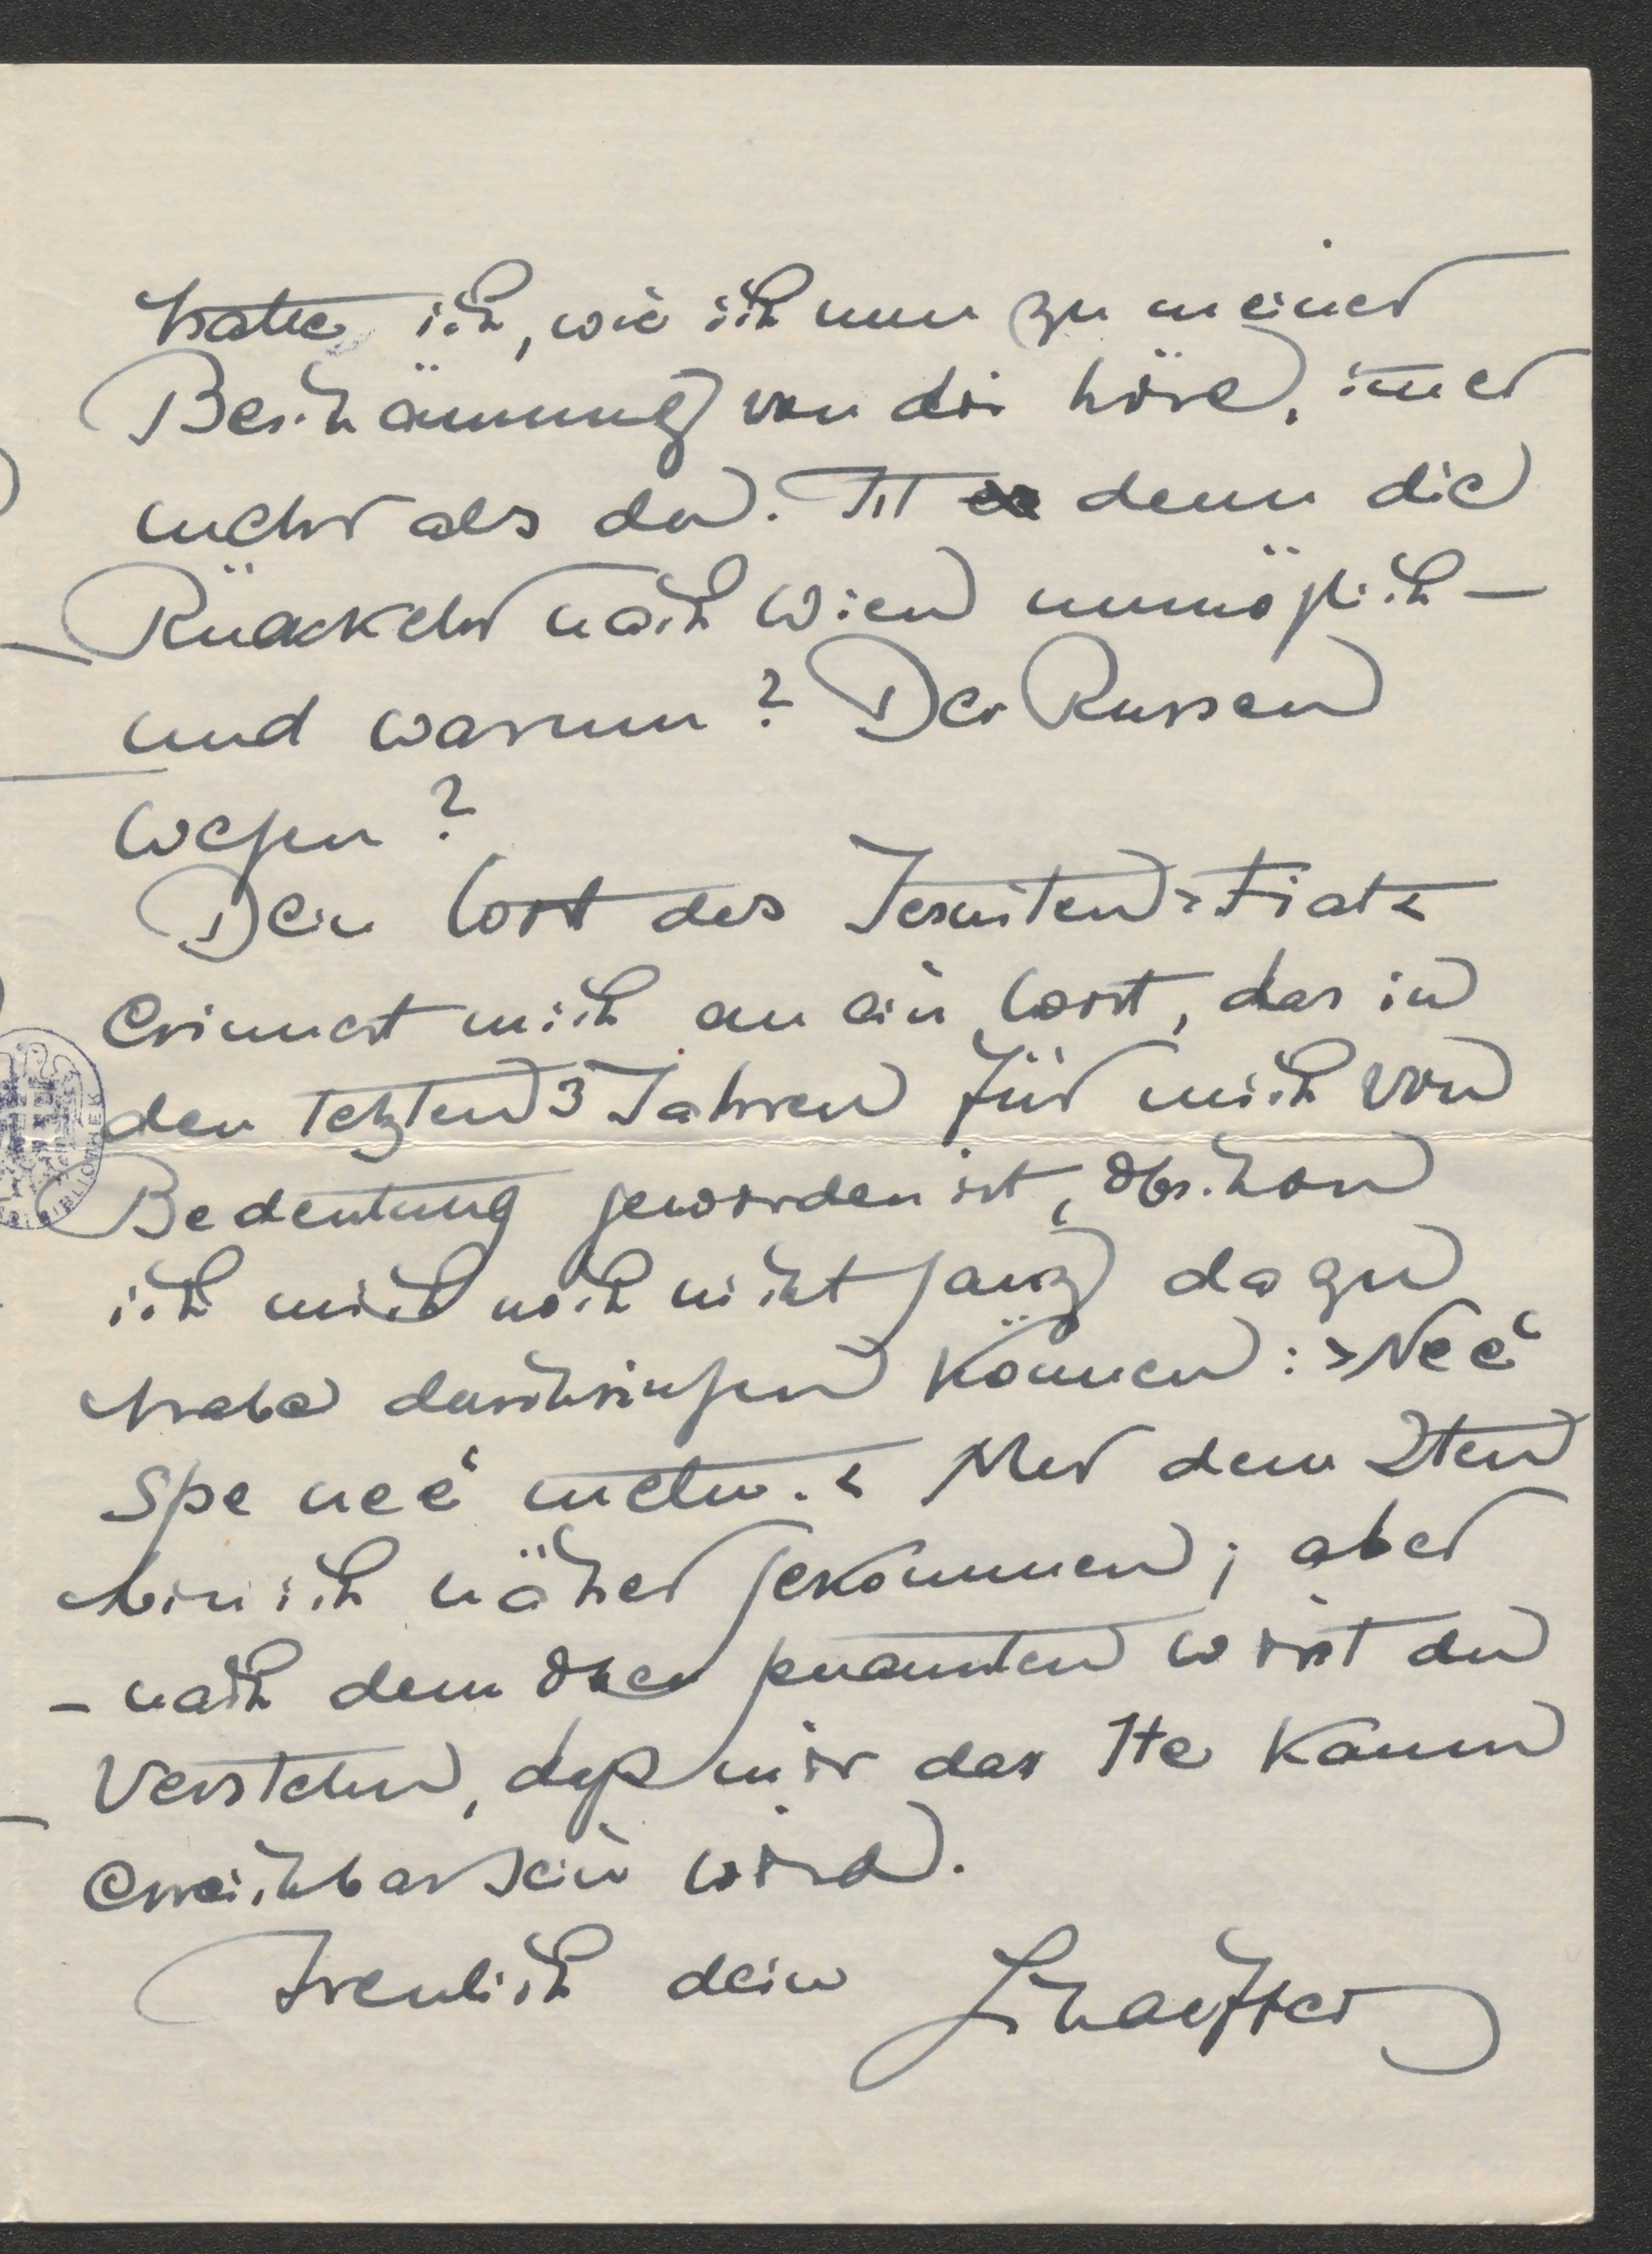 hatte ich, wie ich nun zu meiner
Beschämung von dir höre, im̅er
mehr als du. Ist denn die
Rückkehr nach Wien unmöglich –
und warum? Der Russen
wegen?
Dein Wort des Jesuiten >Fiat<
erinnert mich an ein Wort, das in
den letzten 3 Jahren für mich von
Bedeutung geworden ist, obschon
ich mich noch nicht ganz dazu
habe durchringen können: >Neé
spe neé metu.< Nur dem 2ten
bin ich näher gekommen; aber
– nach dem oben genannten wirst du
verstehen, daß mir das 1te kaum
erreichbar sein wird.
Freulich dein Schaeffer
BIBLIOTHEK